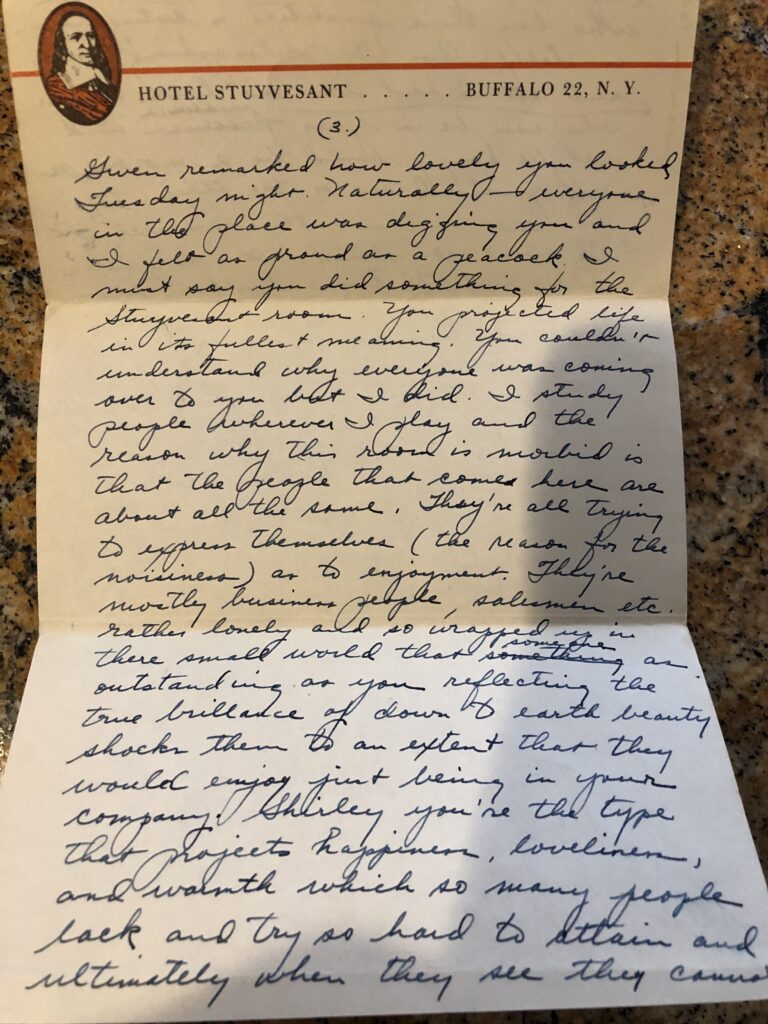 HOTEL STUYVESANT ..... BUFFALO 22, N. Y.
(3.)
Gwen remarked how lovely you looked
Tuesday night. Naturally — everyone
in the place was digging you and
I felt as proud as a peacock. I
must say you did something for the
Stuyvesant room. You projected life
in its fullest meaning. You couldn't
understand why everyone was coming
over to you but I did. I study
people wherever I play and the
reason why this room is morbid is
that the people that comes here are
about all the same. They're all trying
to express themselves (the reason for the
noisiness) as to enjoyment. They're
mostly business people, salesmen etc.
rather lonely and so wrapped up in
there small world that ~~something~~ someone as
outstanding as you reflecting the
true brillance of down to earth beauty
shocks them to an extent that they
would enjoy just being in your
company. Shirley you're the type
that projects happiness, loveliness,
and warmth which so many people
lack and try so hard to attain and
ultimately when they see they